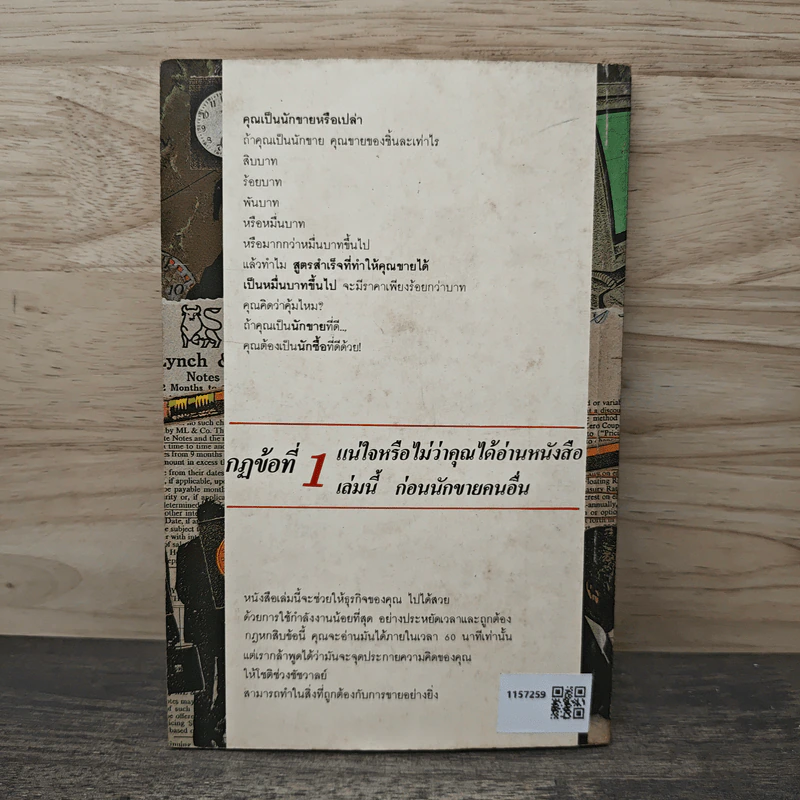 คุณเป็นนักขายหรือเปล่า
ถ้าคุณเป็นนักขาย คุณขายของชิ้นละเท่าไร
สิบบาท
ร้อยบาท
พันบาท
หรือหมื่นบาท
หรือมากกว่าหมื่นบาทขึ้นไป
แล้วทำไม สูตรสำเร็จที่ทำให้คุณขายได้
เป็นหมื่นบาทขึ้นไป จะมีราคาเพียงร้อยกว่าบาท
คุณคิดว่าคุ้มไหม?
ถ้าคุณเป็นนักขายที่ดี...
คุณต้องเป็นนักซื้อที่ดีด้วย!
กฎข้อที่ 1 แน่ใจหรือไม่ว่าคุณได้อ่านหนังสือ
เล่มนี้ ก่อนนักขายคนอื่น
หนังสือเล่มนี้จะช่วยให้ธุรกิจของคุณ ไปได้สวย
ด้วยการใช้กำลังงานน้อยที่สุด อย่างประหยัดเวลาและถูกต้อง
กฎหกสิบข้อนี้ คุณจะอ่านมันได้ภายในเวลา 60 นาทีเท่านั้น
แต่เรากล้าพูดได้ว่ามันจะจุดประกายความคิดของคุณ
ให้โชติช่วงชัชวาลย์
สามารถทำในสิ่งที่ถูกต้องกับการขายอย่างยิ่ง
1157259
Lynch &
Notes
2 Months to